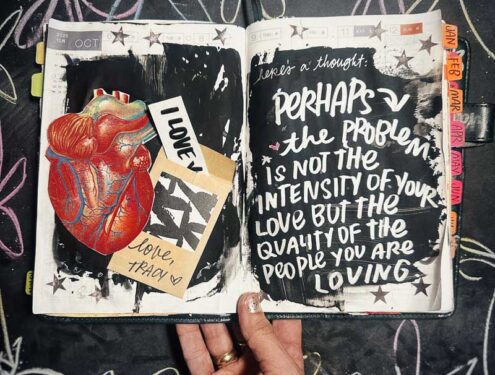 OCT
I LOVE
love,
TRACY
here's a thought:
PERHAPS
the PROBLEM
IS NOT THE
INTENSITY OF YOUR
LOVE BUT THE
QUALITY OF THE
PEOPLE YOU ARE
LOVING
JAN
FEB
MAR
APR
MAY
JUN